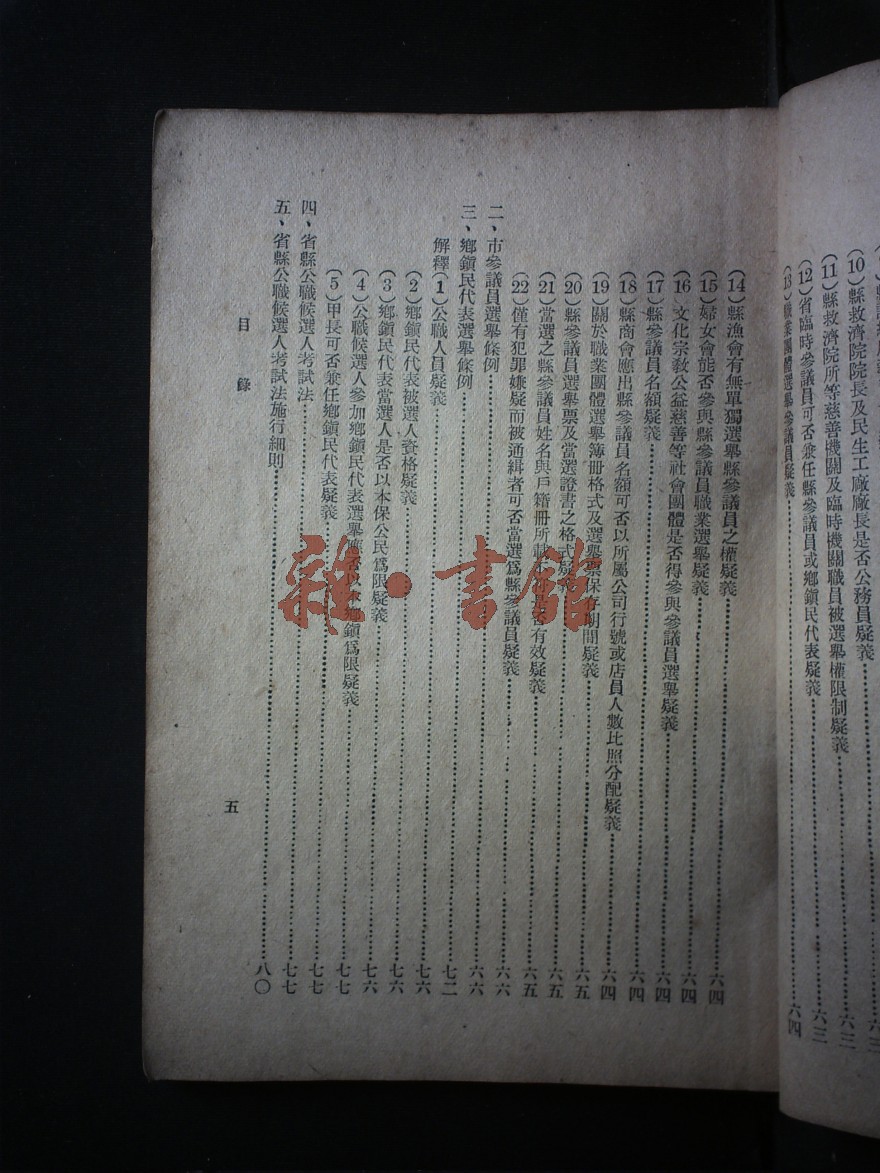 (10)縣救濟院院長及民生工廠廠長是否公務員疑義………六三
(11)縣救濟院所等慈善機關及臨時機關職員被選舉權限制疑義………六三
(12)省臨時參議員可否兼任縣參議員或鄉鎮民代表疑義………六三
(13)職業團體選舉參議員疑義………六四
(14)縣漁會有無單獨選舉縣參議員之權疑義………六四
(15)婦女會能否參與縣參議員職業選舉疑義………六四
(16)文化宗教公益慈善等社會團體是否得參與參議員選舉疑義………六四
(17)縣參議員名額疑義………六四
(18)縣商會應出縣參議員名額可否以所屬公司行號或店員人數比照分配疑義………六四
(19)關於職業團體選舉簿冊格式及選舉票保存期間疑義………六五
(20)縣參議員選舉票及當選證書之格式疑義………六五
(21)當選之縣參議員姓名與戶籍冊所載是否有效疑義………六五
(22)僅有犯罪嫌疑而被通緝者可否當選爲縣參議員疑義………六六
二、市參議員選舉條例………六六
三、鄉鎮民代表選舉條例………七二
解釋(1)公職人員疑義………七六
(2)鄉鎮民代表被選人資格疑義………七六
(3)鄉鎮民代表當選人是否以本保公民爲限疑義………七六
(4)公職候選人參加鄉鎮民代表選舉應否以本鄉鎮爲限疑義………七七
(5)甲長可否兼任鄉鎮民代表疑義………七七
四、省縣公職候選人考試法………七七
五、省縣公職候選人考試法施行細則………八〇
目錄
五
雜·書館